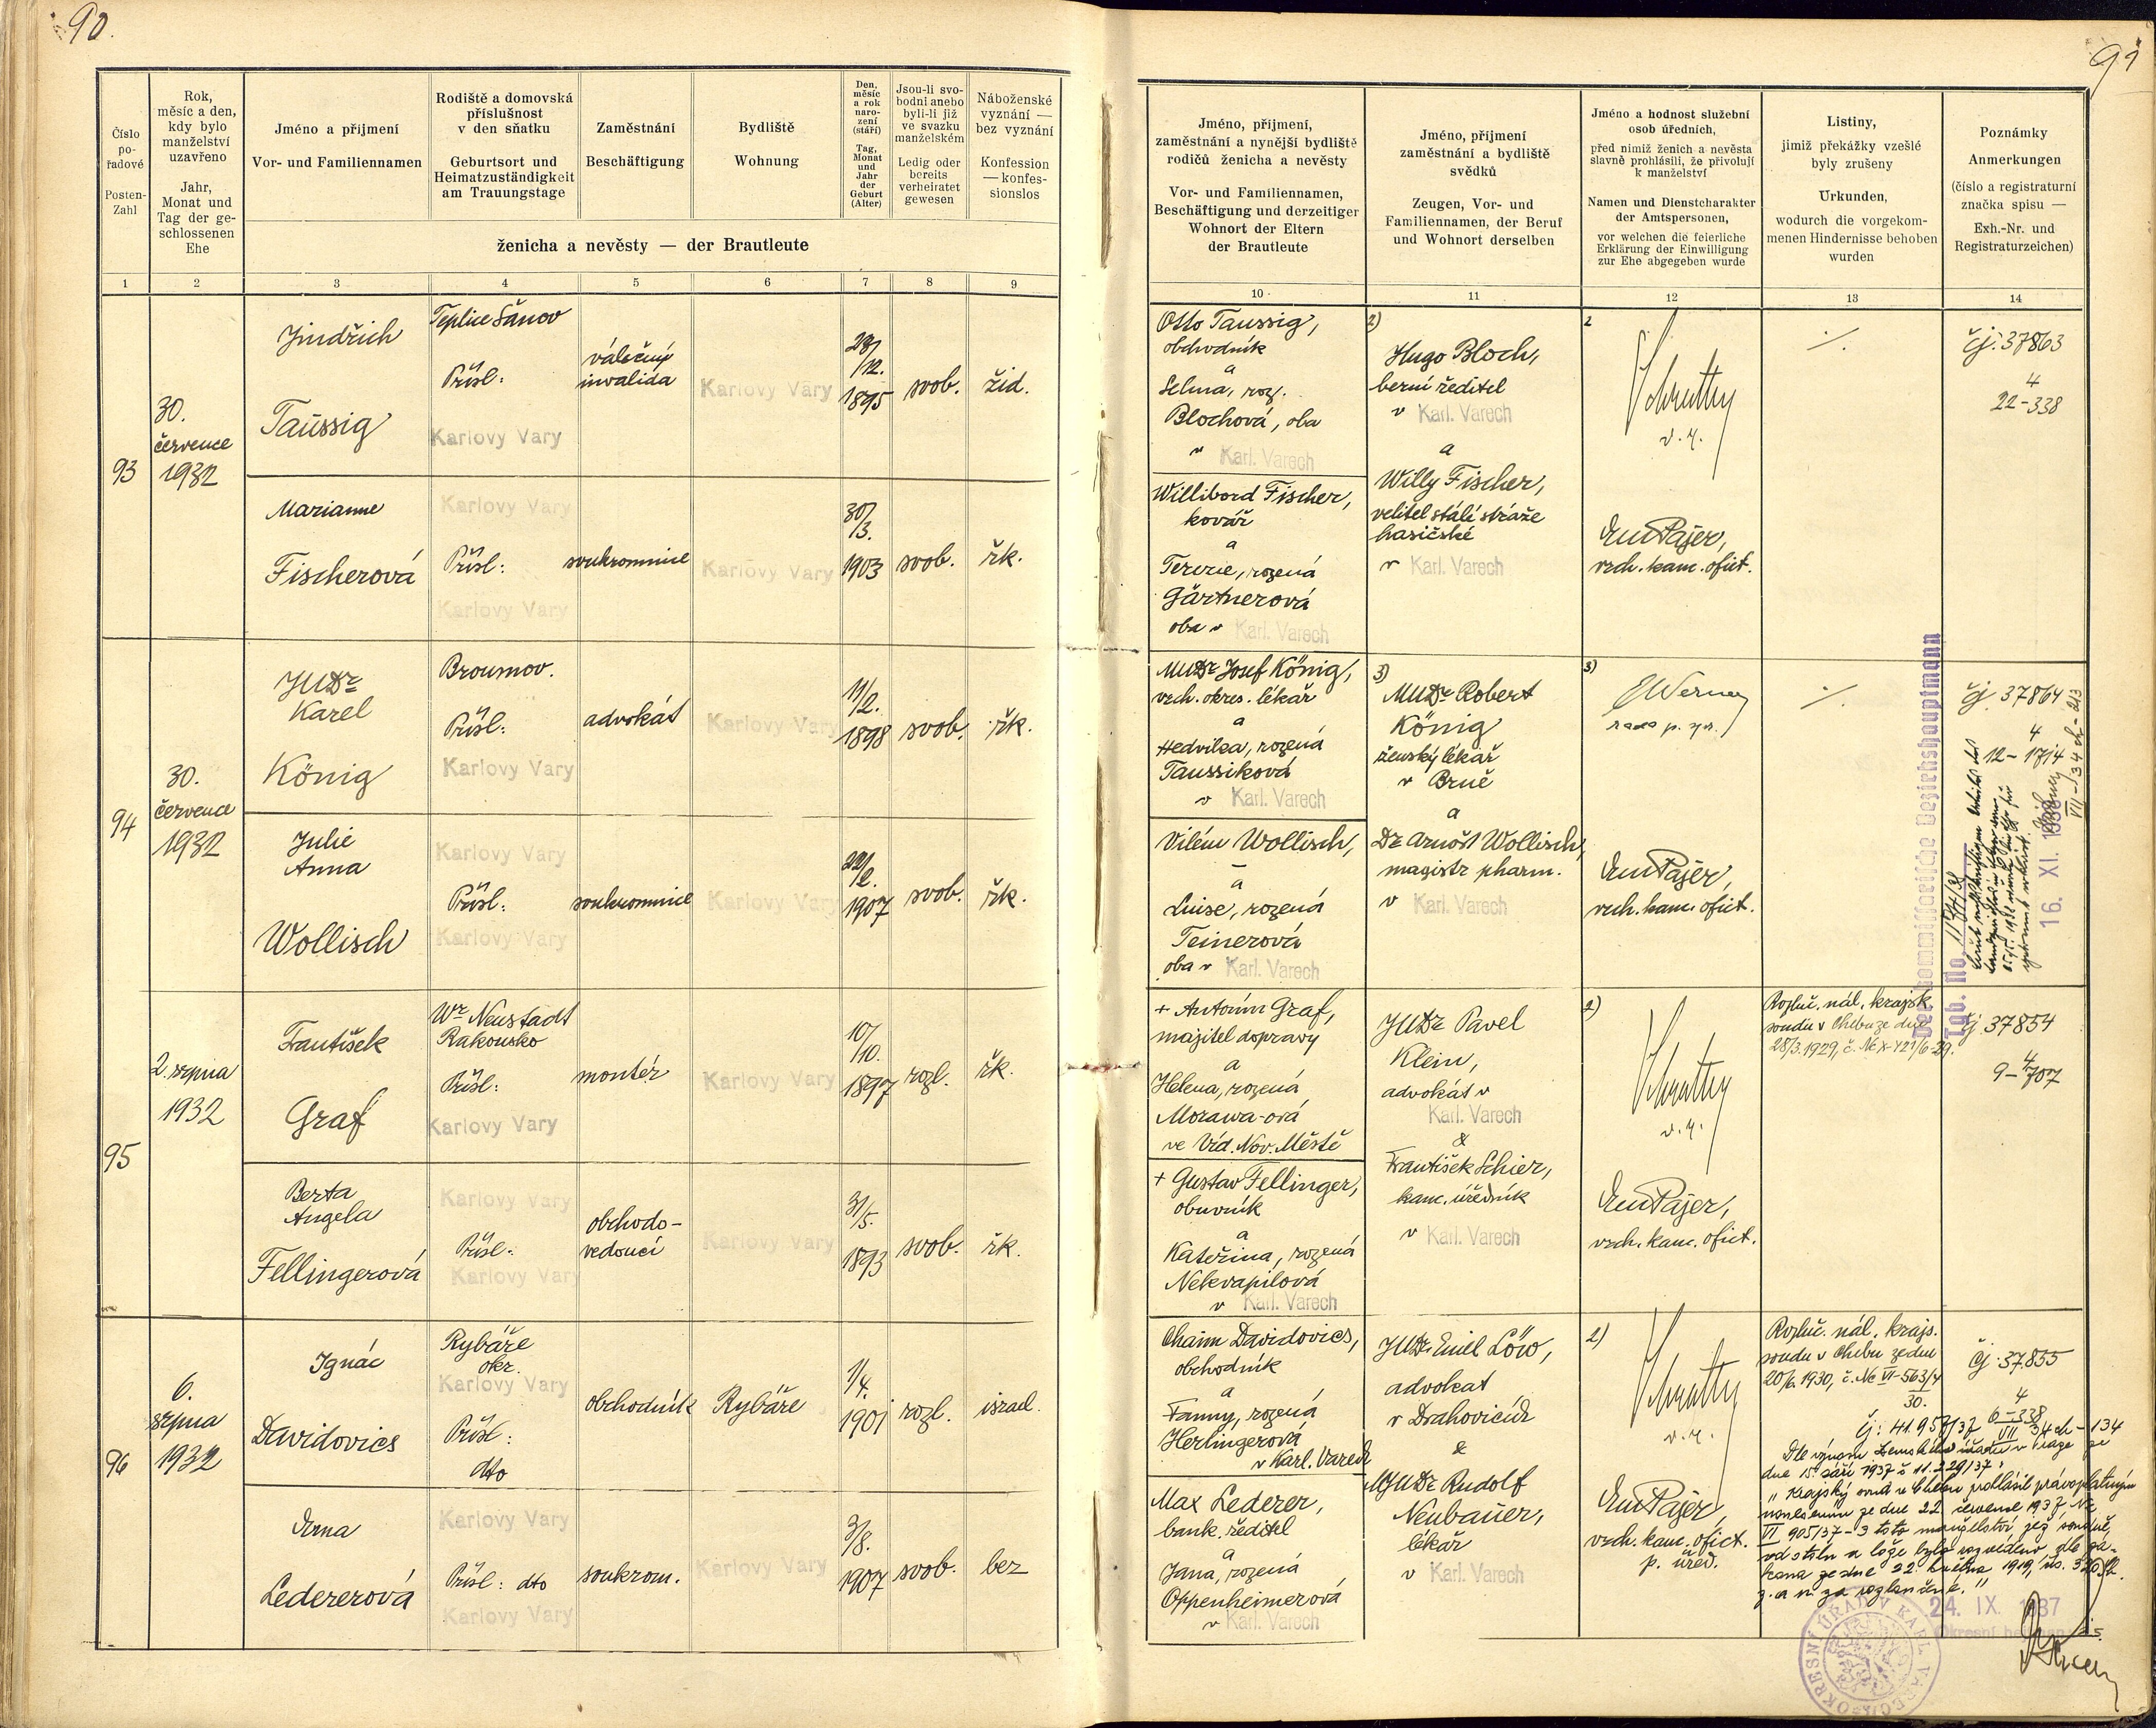 90.
Číslo
po-
řadové
Posten-
Zahl
Rok,
měsíc a den,
kdy bylo
manželství
uzavřeno
Jahr,
Monat und
Tag der ge-
schlossenen
Ehe
Jméno a příjmení
Vor- und Familiennamen
Rodiště a domovská
příslušnost
v den sňatku
Geburtsort und
Heimatzuständigkeit
am Trauungstage
Zaměstnání
Beschäftigung
Bydliště
Wohnung
Den,
měsíc
a rok
naro-
zení
(stáří)
Tag,
Monat
und
Jahr
der
Geburt
(Alter)
Jsou-li svo-
bodni anebo
byli-li již
ve svazku
manželském
Ledig oder
bereits
verheiratet
gewesen
Náboženské
vyznání —
bez vyznání
Konfession
— konfes-
sionslos
ženicha a nevěsty — der Brautleute
1 2 3 4 5 6 7 8 9
93
30.
července
1932
Jindřich
Taussig
Teplice Šanov
Přísl:
Karlovy Vary
válečný
invalida
Karlovy Vary
28/
/12.
1895
svob.
žid.
Marianne
Fischerová
Karlovy Vary
Přísl:
Karlovy Vary
soukromnice
Karlovy Vary
30/
/3.
1903
svob.
řk.
94
30.
července
1932
JUDr
Karel
König
Broumov.
Přísl:
Karlovy Vary
advokát
Karlovy Vary
11/
/2.
1898
svob.
řk.
Julie
Anna
Wollisch
Karlovy Vary
Přísl:
Karlovy Vary
soukromnice
Karlovy Vary
22/
/2.
1907
svob.
řk.
95
2. srpna
1932
František
Graf
Wr Neustadt
Rakousko
Přísl:
Karlovy Vary
montér
Karlovy Vary
10/
/10.
1897
rozl.
řk.
Berta
Angela
Fellingerová
Karlovy Vary
Přísl:
Karlovy Vary
obchodo-
vedoucí
Karlovy Vary
31/
/5.
1893
svob.
řk.
96
6.
srpna
1932
Ignác
Davidovics
Rybáře
okr.
Karlovy Vary
Přísl:
dto
obchodník
Rybáře
1/
/4.
1901
rozl.
israel.
Erna
Ledererová
Karlovy Vary
Přísl: dto
Karlovy Vary
soukrom.
Karlovy Vary
3/
/8.
1907
svob.
bez
91
Jméno, příjmení,
zaměstnání a nynější bydliště
rodičů ženicha a nevěsty
Vor- und Familiennamen,
Beschäftigung und derzeitiger
Wohnort der Eltern
der Brautleute
Jméno, příjmení
zaměstnání a bydliště
svědků
Zeugen, Vor- und
Familiennamen, der Beruf
und Wohnort derselben
Jméno a hodnost služební
osob úředních,
před nimiž ženich a nevěsta
slavně prohlásili, že přivolují
k manželství
Namen und Dienstcharakter
der Amtspersonen,
vor welchen die feierliche
Erklärung der Einwilligung
zur Ehe abgegeben wurde
Listiny,
jimiž překážky vzešlé
byly zrušeny
Urkunden,
wodurch die vorgekom-
menen Hindernisse behoben
wurden
Poznámky
Anmerkungen
(číslo a registraturní
značka spisu —
Exh.-Nr. und
Registraturzeichen)
10 11 12 13 14
Otto Taussig,
obchodník
a
Selma, roz.
Blochová, oba
v Karl. Varech
2)
Hugo Bloch,
berní ředitel
v Karl. Varech
a
Willy Fischer,
velitel stálé stráže
hasičské
v Karl. Varech
2
v. r.
Em Pajer,
vrch. kanc. ofict.
čj: 37863
4
22-338
Willibord Fischer,
kovář
a
Terezie, rozená
Gärtnerová
oba v Karl. Varech
MUDr Josef König,
vrch. okres. lékař
a
Hedvika, rozená
Taussiková
v Karl. Varech
3)
MUDr Robert
König
ženský lékař
v Brně
a
Dr Arnošt Wollisch,
magistr pharm.
v Karl. Varech
3)
EWerner
rada p. spr.
Em Pajer,
vrch. kanc. ofict.
čj. 37864
4
12-1714
VII-34 ch-213
Der kommissarische Bezirkshauptmann
Tgb. No.
16. XI. 1938
Vilém Wollisch,
—
a
Luise, rozená
Teinerová
oba v Karl. Varech
+ Antonín Graf,
majitel dopravy
a
Helena, rozená
Morawa-ová
ve Víd. Nov. Městě
JUDr Pavel
Klein,
advokát v
Karl. Varech
&
František Schier,
kanc. úředník
v Karl. Varech
2)
v. r.
Em Pajer,
vrch. kanc. ofict.
Rozluč. nál. krajsk.
soudu v Chebu ze dne
28/3.1929, č. Nc X-421/6-29.
čj 37854
4
9-707
+ Gustav Fellinger,
obuvník
a
Kateřina, rozená
Nekvapilová
v Karl. Varech
Chaim Davidovics,
obchodník
a
Fanny, rozená
Herlingerová
v Karl. Varech
JUDr. Emil Löw,
advokat
v Drahovicích
&
MUDr Rudolf
Neubauer,
lékař
v Karl. Varech
2)
v. r.
Em Pajer,
vrch. kanc. ofict.
p. úřed.
Rozluč. nál. krajs.
soudu v Chebu ze dne
20/6. 1930, č. Nc VI-563/4
30.
čj: 37855
4
6-338
Čj: 41.957/37 VII 34 ch-134
Dle výnosu Zemského úřadu v Praze ze
dne 15. září 1937 č 11.229/37:
„Krajský soud v Chebu prohlásil právoplatným
usnesením ze dne 22. července 1937, Nc
VI 905/37-3 toto manželství, jež soudně,
od stolu a lože bylo rozvedeno dle zá-
kona ze dne 22. května 1919, čís. 320 Sb.
z. a n. za rozloučené."
Max Lederer,
bank. ředitel
a
Jana, rozená
Oppenheimerová
v Karl. Varech
24. IX. 1937
Okresní hejtman:
OKRESNÍ ÚŘAD V KARL. VARECH